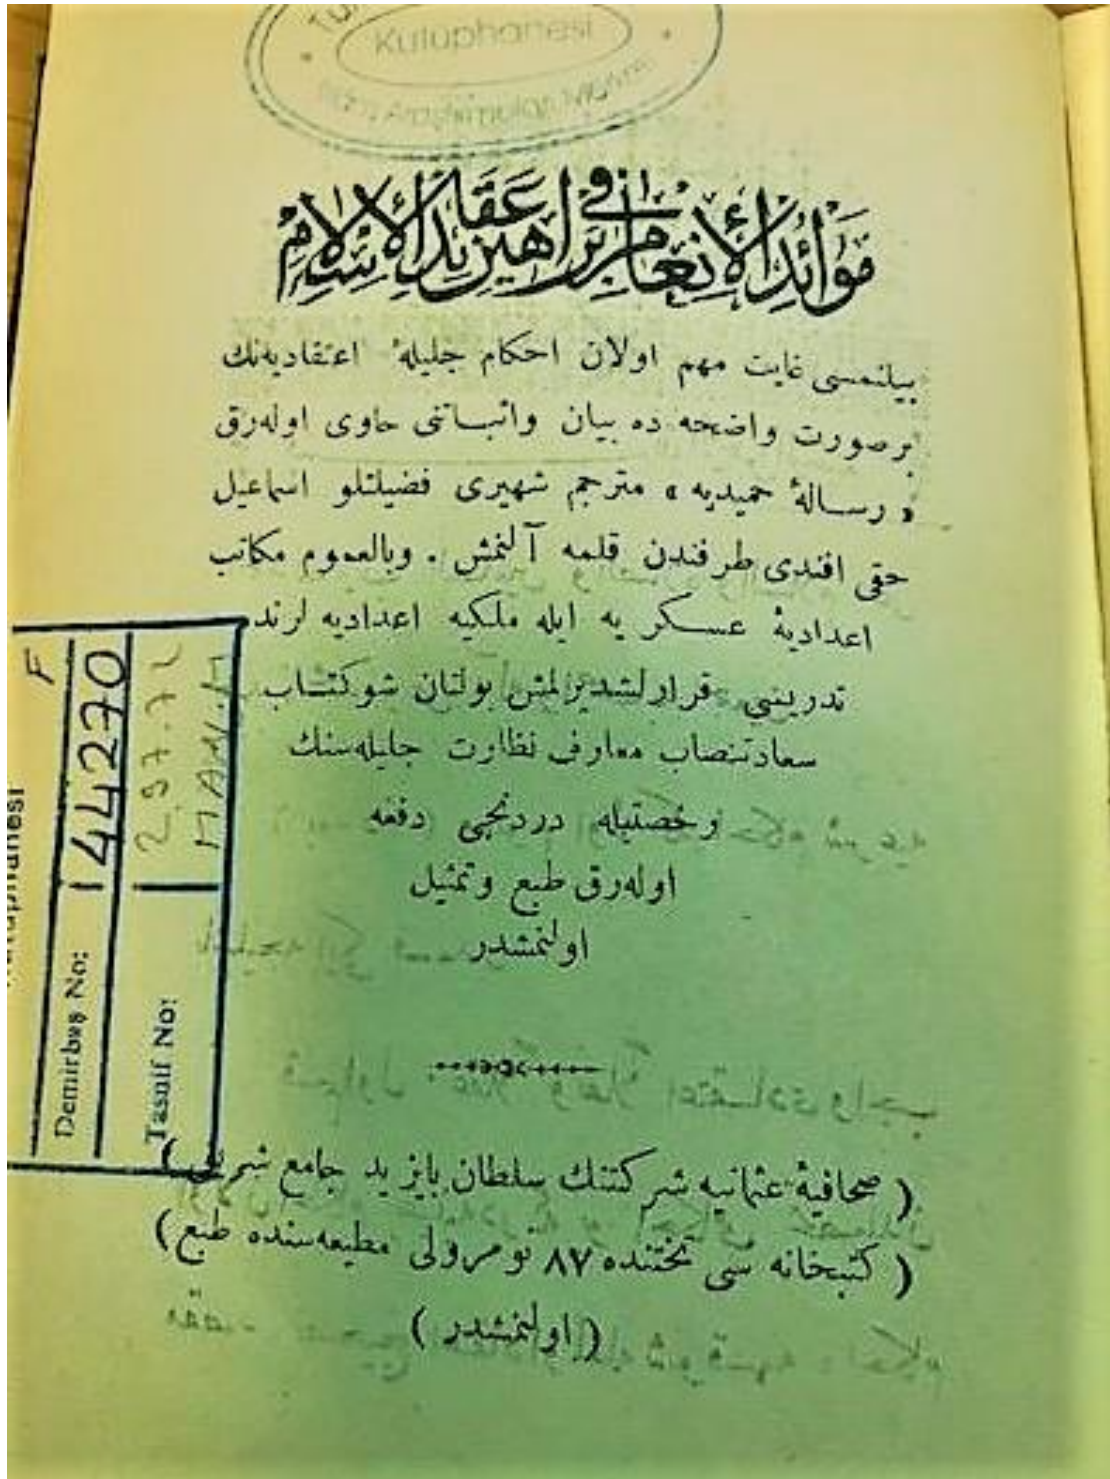 Kütüphanesi
مَوَائِدُ الْاِنْعَامِ فِى بَرَاهِينِ عَقَائِدِ الْاِسْلَامِ
بيلنمسى غايت مهم اولان احكام جليلهٔ اعتقاديه‌نك
برصورت واضحه ده بيان واثباتنى حاوى اوله‌رق
« رسالهٔ حميديه » مترجم شهيرى فضيلتلو اسماعيل
حقى افندى طرفندن قلمه آلنمش . وبالعموم مكاتب
اعداديهٔ عسكريه ايله ملكيه اعداديه لرنده
تدريسى قرارلشديرلمش بولنان شو كتاب
سعادتنصاب معارف نظارت جليله‌سنك
رخصتيله دردنجى دفعه
اوله‌رق طبع وتمثيل
اولنمشدر
( صحافيهٔ عثمانيه شركتنك سلطان بايزيد جامع شريفى )
( كتبخانه سى تحتنده ٨٧ نومرولى مطبعه‌سنده طبع )
( اولنمشدر )
Demirbaş No: 144270
F
Tasnif No: 297.71
MAN.M